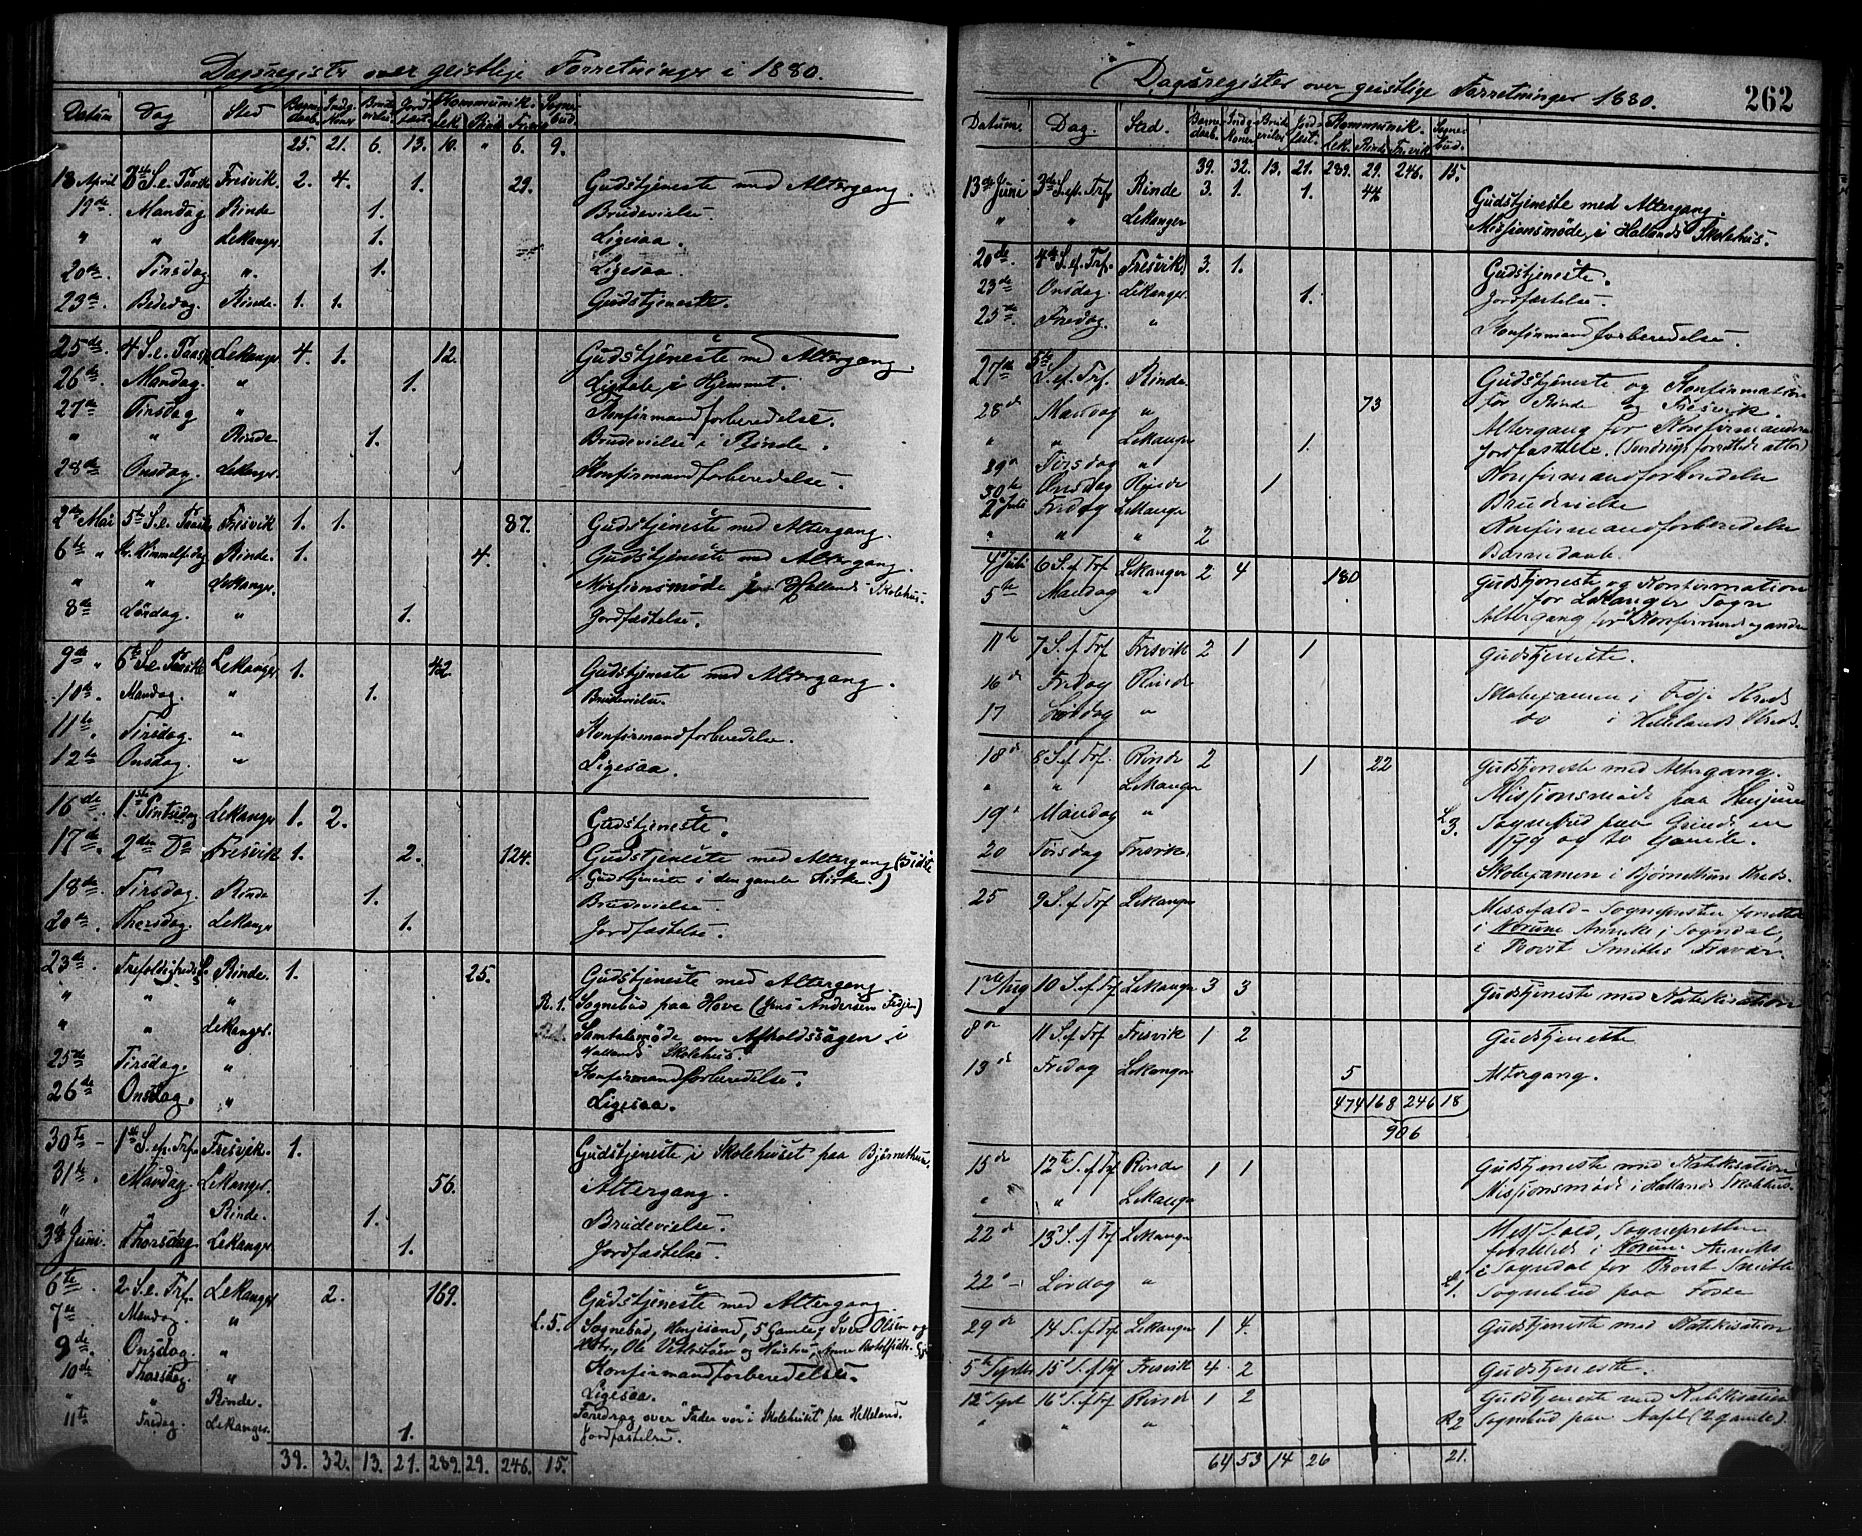 Dagsregister over geistlige Forretninger i 1880.
Datum Dag Sted Barnedaab. Indg. Koner Brudevielser Jordfæst. Kommunik. Lek. Rinde Fresv. Sognebud.
25. 21. 6. 13. 10. " 6. 9.
18 April 3die S. e. Paaske Fresvik. 2. 4. 1. 29. Gudstjeneste med Altergang.
19de Mandag Rinde 1. Brudevielse.
" " Lekanger. 1. Ligesaa.
20de Tirsdag " 1. Ligesaa.
23de Bededag Rinde. 1. 1. Gudstjeneste.
25de 4 S. e. Paaske Lekanger 4. 1. 12. Gudstjeneste med Altergang.
26de Mandag. " 1. Ligtale i Hjemmet.
27de Tirsdag " Konfirmandforberedelse.
" " Rinde 1. Brudevielse i Rinde.
28de Onsdag. Lekanger. Konfirmandforberedelse.
2den Mai 5te S. e. Paaske Fresvik 1. 1. 87. Gudstjeneste med Altergang.
6te " Kr. Himmelf.dag Rinde. 1. 4. Gudstjeneste med Altergang.
" " Lekanger. Missionsmøde Hallands Skolehus.
8de Lørdag. " 1. Jordfæstelse.
9de " 6te S. e. Paaske Lekanger 1. 42 Gudstjeneste med Altergang.
10de Mandag. " 1. Brudevielse.
11te Tirsdag. " Konfirmandforberedelse.
12te Onsdag. " Ligesaa.
16de 1ste Pintsedag Lekanger 1. 2. Gudstjeneste.
17de 2den Do Fresvik 1. 2. 124. Gudstjeneste med Altergang (Sidste
Gudstjeneste i den gamle Kirke.)
18de Tirsdag. Rinde 1. Brudevielse.
20de Thorsdag. Lekanger 1. Jordfæstelse.
23de Trefoldigheds S. Rinde. 1. 25. Gudstjeneste med Altergang.
" " " R. 1. Sognebud paa Hove (Jens Andersen Fedje)
" " Lekanger. Samtalemøde om Afholdssagen i
Hallands Skolehus.
25de Tirsdag. " Konfirmandforberedelse.
26de Onsdag. " Ligesaa.
30te 1ste S. ef. Trf. Fresvik. 1. Gudstjeneste i Skolehuset paa Bjørnethun.
31te Mandag. Lekanger. 56. Altergang.
" Rinde. 1. Brudevielse.
3die Juni Thorsdag Lekanger 1. Jordfæstelse.
6te 2 S. e. Trf. Lekanger 2. 169. Gudstjeneste med Altergang.
7de Mandag. " L. 5. Sognebud, Henjesand, 5 Gamle, Iver Olsen og
9de Onsdag. " Hstr, Ole Vikkstøen og Hustru, Anne
10de Thorsdag. " Konfirmandforberedelse.
" Rinde. Ligesaa.
Foredrag over "Fader vor" i Skolehuset paa Helleland.
11te Fredag. Lekanger. 1. Jordfæstelse.
39. 32. 13. 21. 289. 29. 246. 15.
Dagsregister over geistlige Forretninger 1880.
262
Datum. Dag. Sted. Barnedaab. Indg. Koner Brudevielser Jordfæst. Kommunik. Lek. Rinde Fresvik Sognebud.
39. 32. 13. 21. 289. 29. 246. 15.
13de Juni 3die S. ef. Trf. Rinde 3. 1. 1. 44 Gudstjeneste med Altergang.
" " Lekanger Missionsmøde i Hallands Skolehus.
20de 4de S. ef. Trf. Fresvik 3. 1. Gudstjeneste.
23de Onsdag. Lekanger. 1. Jordfæstelse.
25de Fredag. " Konfirmandforberedelse.
27de 5te S. ef. Trf. Rinde Gudstjeneste og Konfirmation
for Rinde og Fresvik.
28de Mandag " 73 Altergang for Konfirmanderne
" " Lekanger 1. Jordfæstelse.
29de Tirsdag " Konfirmandforberedelse
30te Onsdag Rinde 1 Brudevielse
2 Juli Fredag Lekanger Konfirmandforberedelse
" " " 2 Barnedaab.
4 Juli 6 S. ef Trf Lekanger 2 4 180 Gudstjeneste og Konfirmation
for Lekanger Sogn
5te Mandag " Altergang for Konfirmand. og andre
11te 7 S. ef Trf Fresvik 2 1 1 Gudstjeneste.
16de Fredag Rinde Skolexamen i Fedje Kreds
17 Lørdag " do i Hellelands Kreds.
18de 8 S. ef Trf. Rinde 2 1 22 Gudstjeneste med Altergang.
" " Lekanger Missionsmøde paa Henjum
19de Mandag " L 3. Sognebud paa Grinde en
syg og to Gamle.
20 Tirsdag Fresvik. Skolexamen i Bjørnethun Kreds.
25 9 S. ef Trf Lekanger Messefald - Sognepresten forrettede
i Norum Anneks i Sogndal,
i Provst Smitts Fravær.
1ste Aug 10 S. ef Trf Lekanger 3 3 Gudstjeneste med Katekisation
8de 11 S. ef Trf Fresvik 1 2 Gudstjeneste
13de Fredag Lekanger 5 Altergang.
474 168 246 18
906
15de 12te S. ef Trf Rinde 1 1 Gudstjeneste med Katekisation
" " Lekanger Missionsmøde i Hallands Skolehus.
22de 13 S. ef Trf Lekanger Messefald, Sognepresten
forrettede i Norum Anneks
i Sogndal for Provst Smitt
22 Lørdag " L 1. Sognebud paa Fosse
29de 14 S. ef Trf Lekanger 1 4. Gudstjeneste med Katekisation
5te Septbr 15 S. ef Trf Fresvik 4 2 Gudstjeneste.
12te Sept 16 S. ef Trf Rinde 1 2 Gudstjeneste med Katekisation
" " " R 2 Sognebud paa (2 gamle).
64 53 14 26 21.